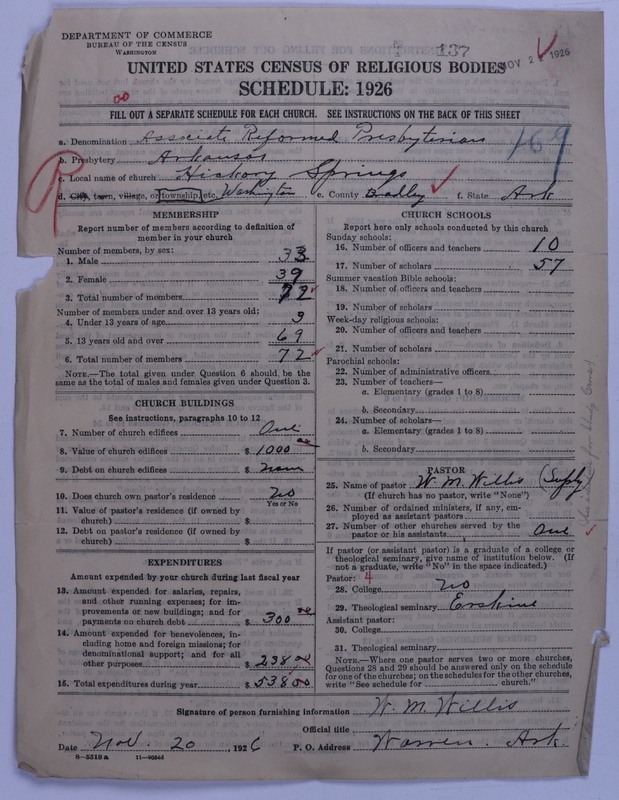 DEPARTMENT OF COMMERCE
BUREAU OF THE CENSUS
WASHINGTON
137
NOV 2 1926
UNITED STATES CENSUS OF RELIGIOUS BODIES
SCHEDULE: 1926
FILL OUT A SEPARATE SCHEDULE FOR EACH CHURCH. SEE INSTRUCTIONS ON THE BACK OF THIS SHEET
169
a. Denomination Associate Reformed Presbyterian
b. Presbytery Arkansas
c. Local name of church Hickory Springs
d. City, town, village, or township, etc. Washington e. County Bradley f. State Ark
MEMBERSHIP
Report number of members according to definition of member in your church
Number of members, by sex:
1. Male 33
2. Female 39
3. Total number of members 72
Number of members under and over 13 years old:
4. Under 13 years of age 3
5. 13 years old and over 69
6. Total number of members 72
NOTE.—The total given under Question 6 should be the same as the total of males and females given under Question 3.
CHURCH BUILDINGS
See instructions, paragraphs 10 to 12
7. Number of church edifices One
8. Value of church edifices $ 1000 00
9. Debt on church edifices $ none
10. Does church own pastor's residence no
Yes or No
11. Value of pastor's residence (if owned by church) $
12. Debt on pastor's residence (if owned by church) $
EXPENDITURES
Amount expended by your church during last fiscal year
13. Amount expended for salaries, repairs, and other running expenses; for improvements or new buildings; and for payments on church debt $ 300 00
14. Amount expended for benevolences, including home and foreign missions; for denominational support; and for all other purposes $ 238.00
15. Total expenditures during year $ 538.00
CHURCH SCHOOLS
Report here only schools conducted by this church
Sunday schools:
16. Number of officers and teachers 10
17. Number of scholars 57
Summer vacation Bible schools:
18. Number of officers and teachers
19. Number of scholars
Week-day religious schools:
20. Number of officers and teachers
21. Number of scholars
Parochial schools:
22. Number of administrative officers
23. Number of teachers—
a. Elementary (grades 1 to 8)
b. Secondary
24. Number of scholars—
a. Elementary (grades 1 to 8)
b. Secondary
PASTOR
25. Name of pastor W. M. Willis (Supply
(If church has no pastor, write "None")
26. Number of ordained ministers, if any, employed as assistant pastors
27. Number of other churches served by the pastor or his assistants One
If pastor (or assistant pastor) is a graduate of a college or theological seminary, give name of institution below. (If not a graduate, write "No" in the space indicated.)
Pastor: 4
28. College no
29. Theological seminary Erskine
Assistant pastor:
30. College
31. Theological seminary
NOTE.—Where one pastor serves two or more churches, Questions 28 and 29 should be answered only on the schedule for one of the churches; on the schedules for the other churches, write "See schedule for church."
Signature of person furnishing information W. M. Willis
Official title
Date Nov. 20, 1926 P. O. Address Warren. Ark.
8—5513a 11—9056d